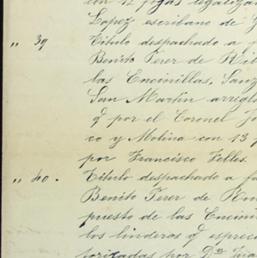 con 12 fojas legalizad
Lopez escribano de
" 39 Titulo despachado a f
Benito Ferer de Rib
las Encinillas, Sauz
San Martin arregl
q.e por el Coronel Jo
co y Molina con 13 f
por Francisco Telles.
" 40. Titulo despachado a fa
Benito Ferer de
puesto de las Encini
los linderos q.e espec
torizadas por D.n Jua